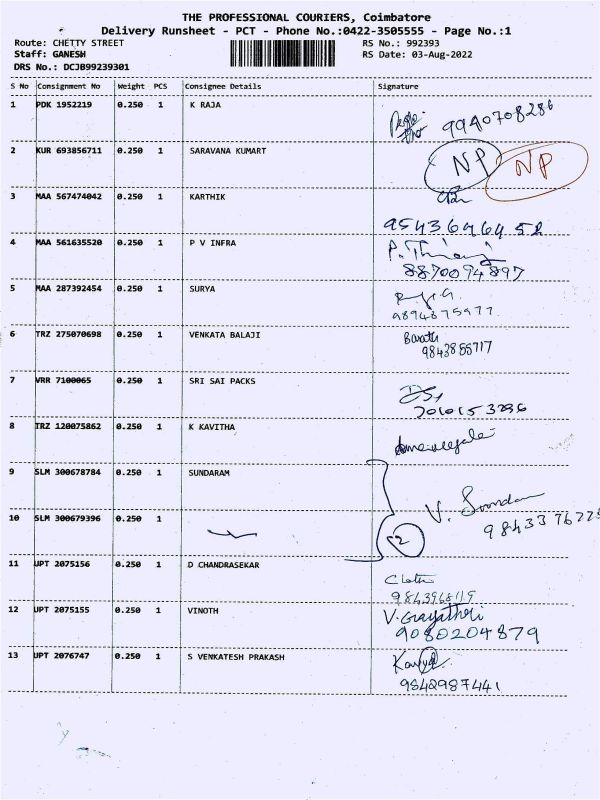 THE PROFESSIONAL COURIERS, Coimbatore
Delivery Runsheet - PCT - Phone No.:0422-3505555 - Page No.:1
Route: CHETTY STREET
Staff: GANESH
DRS No.: DCJB99239301
RS No.: 992393
RS Date: 03-Aug-2022
S No Consignment No Weight PCS Consignee Details Signature
1 PDK 1952219 0.250 1 K RAJA
9940708286
2 KUR 693856711 0.250 1 SARAVANA KUMART
NP NP
3 MAA 567474042 0.250 1 KARTHIK
9543646452
4 MAA 561635520 0.250 1 P V INFRA
8870094897
5 MAA 287392454 0.250 1 SURYA
9894875977
6 TRZ 275070698 0.250 1 VENKATA BALAJI
Barath
9843855717
7 VRR 7100065 0.250 1 SRI SAI PACKS
8 TRZ 120075862 0.250 1 K KAVITHA
9 SLM 300678784 0.250 1 SUNDARAM
V.
10 SLM 300679396 0.250 1
2
11 UPT 2075156 0.250 1 D CHANDRASEKAR
12 UPT 2075155 0.250 1 VINOTH
V.Gayathri
9080204879
13 UPT 2076747 0.250 1 S VENKATESH PRAKASH
9842987441